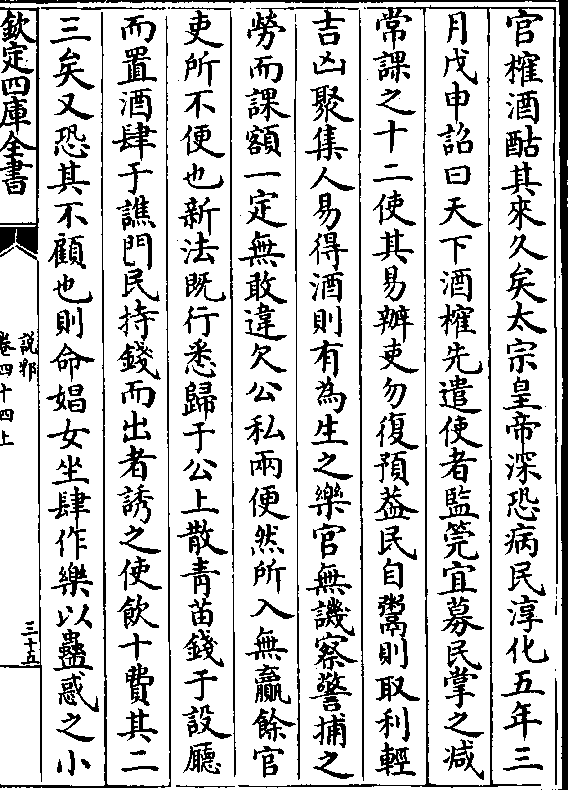 官榷酒酤其來久矣太宗皇帝深恐病民淳化五年三
月戊申詔曰天下酒榷先遣使者監筦宜募民掌之減
常課之十二使其易辦吏勿復預葢民自鬻則取利輕
吉凶聚集人易得酒則有為生之樂官無譏察警捕之
勞而課額一定無敢違欠公私兩便然所入無贏餘官
吏所不便也新法既行悉歸于公上散青苗錢于設廳
而置酒肆于譙門民持錢而出者誘之使飲十費其二
三矣又恐其不顧也則命娼女坐肆作樂以蠱惑之小
欽定四庫全書
說郛
卷四十四上
三十五